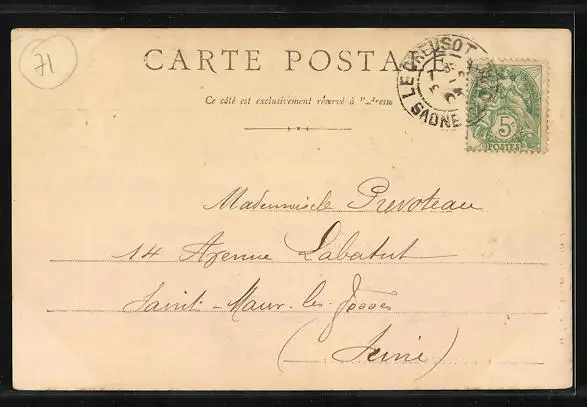 71
CARTE POSTALE
Ce côté est exclusivement réservé à l'adresse
LE CREUSOT
SAONE
5c
POSTES
Mademoiselle Prevoteau
14 Avenue Labatut
Saint-Maur-les-Fossés
(Seine)